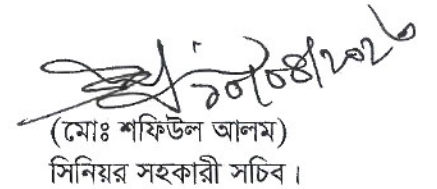 ১০/০৪/২০২৬
(মোঃ শফিউল আলম)
সিনিয়র সহকারী সচিব।